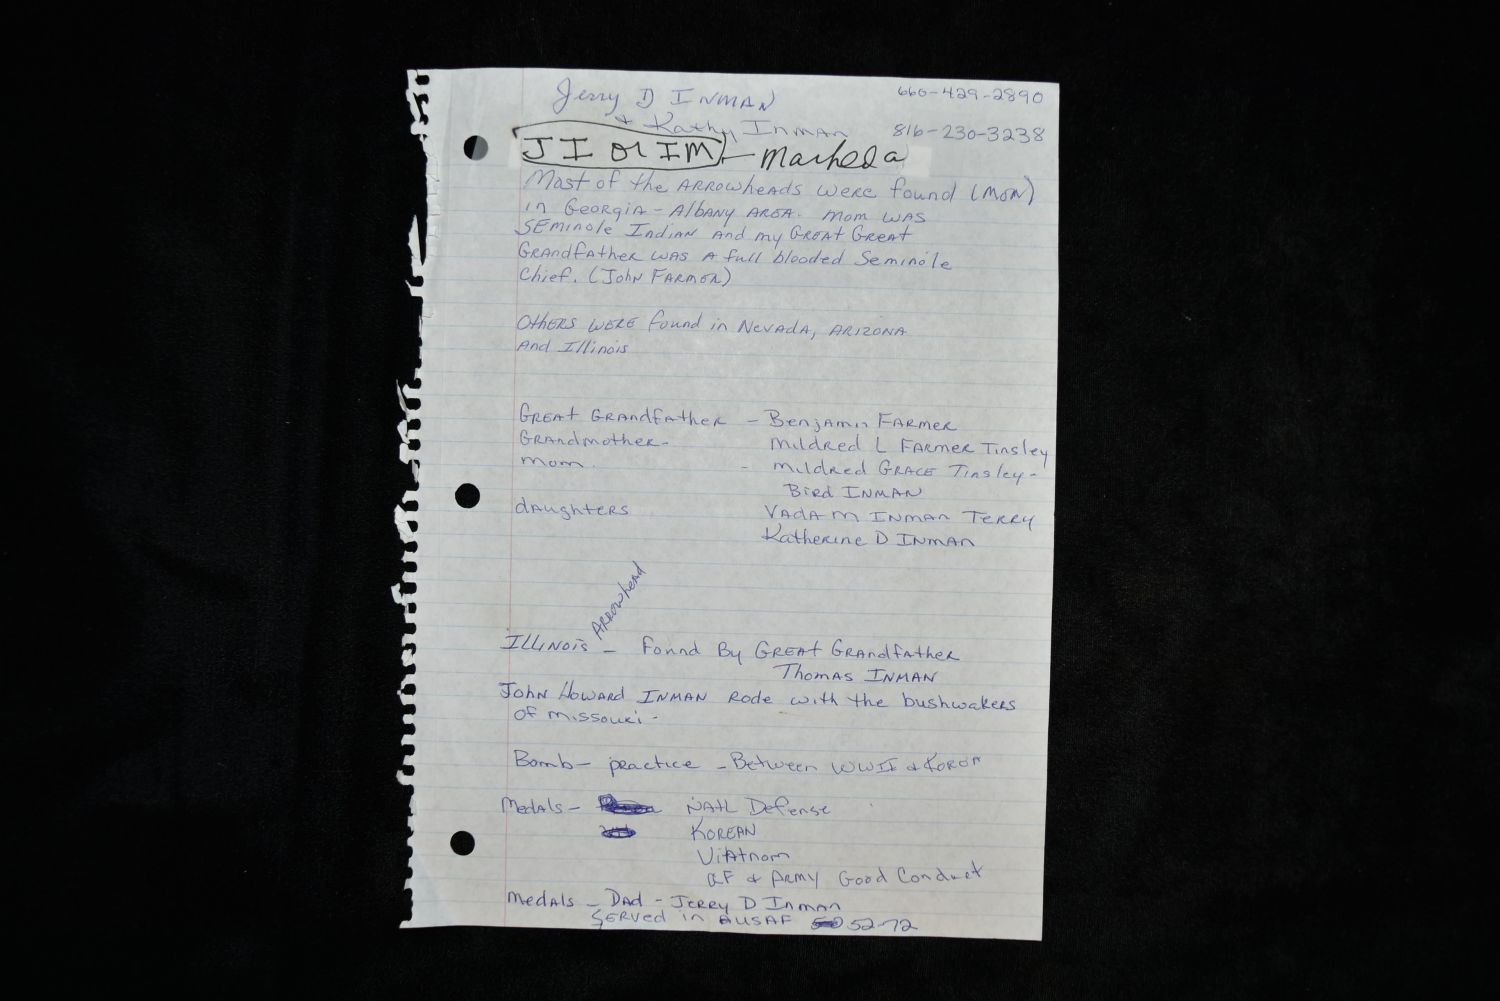 Jerry D INMAN 660-429-2890
+ Kathy INMAN 816-230-3238
JI or IM - marked a
Most of the ARROWheads were found (MOM)
in Georgia - Albany AREA. Mom WAS
SEminole Indian and my GREAT GREAT
GRANdfAther WAS A full blooded Seminole
Chief. (John FARMER)
OthERS WERE found in NevADA, ARIZONA
And Illinois
GREAt GRANdfAther - Benjamin FARMER
GRANdmother - Mildred L FARMER Tinsley
Mom. - Mildred GRACE Tinsley-
Bird INMAN
dAughtERS VADA M INMAN TERRY
KathERINE D INMAN
ARROWheAd
ILLINOIS - Found By GREAT GRANdfAther
Thomas INMAN
John Howard INMAN Rode with the bushwakers
of missouri-
Bomb- practice - Between WWII &
Medals- NAtL Defense
KOREAN
ViAtnom
AF & ARMY Good Conduct
Medals - DAD - JERRY D INMAN
SERVed in AUSAF 52-72